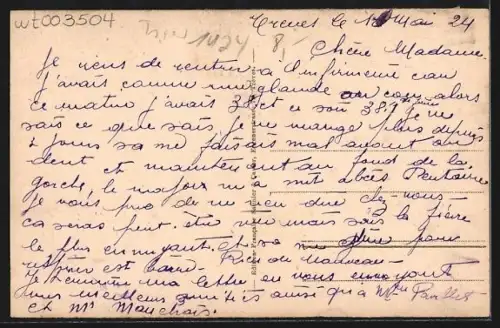 wt003504
Treves le 18 Mai 24
Chère Madame
Je viens de rentrer à l'infirmerie car
j'avais comme une glande au cou alors
ce matin j'avais 38 et ce soir 38.1 je ne
sais ce que sais je ne mange plus depuis
jours sa me faisais mal avant au
dent et maintenant au fond de la
gorche, le major m'a mit abcès Dentaire
Je vous prie de ne rien dire chez nous
ca seras peut être rien mais sais la fièvre
le plus ennuyant, et sa me gêne pour
est
Rien de nouveau
Je termine ma lettre en vous envoyant
mes meilleurs amitiés ainsi qu'a Mme
et Mr